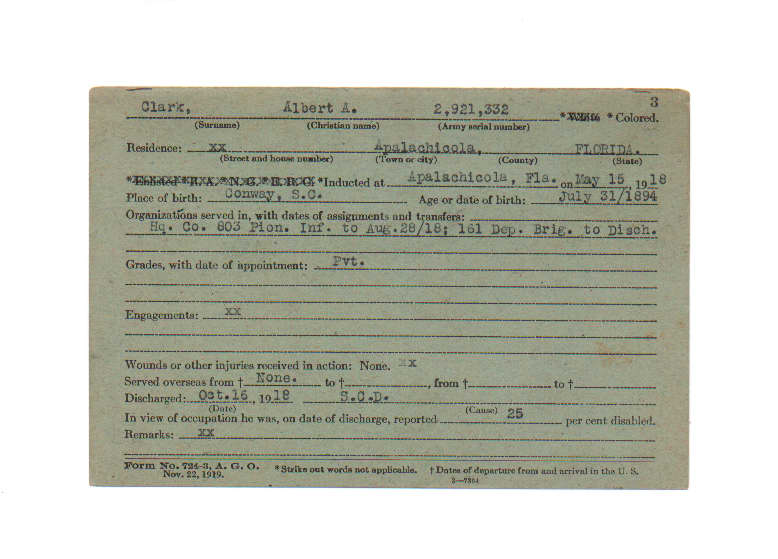 3
Clark, Albert A. 2,921,332 * White * Colored.
(Surname) (Christian name) (Army serial number)
Residence: xx Apalachicola, FLORIDA.
(Street and house number) (Town or city) (County) (State)
*Enlisted *R. A. *N. G. *E. R. C. *Inducted at Apalachicola, Fla. on May 15, 1918
Place of birth: Conway, S.C. Age or date of birth: July 31/1894
Organizations served in, with dates of assignments and transfers:
Hq. Co. 803 Pion. Inf. to Aug.28/18; 161 Dep. Brig. to Disch.
Grades, with date of appointment: Pvt.
Engagements: xx
Wounds or other injuries received in action: None. xx
Served overseas from † None. to †, from † to †
Discharged: Oct.16, 1918 S.C.D.
(Date) (Cause)
In view of occupation he was, on date of discharge, reported 25 per cent disabled.
Remarks: xx
Form No. 724-3, A. G. O. * Strike out words not applicable. † Dates of departure from and arrival in the U. S.
Nov. 22, 1919. 3—7304